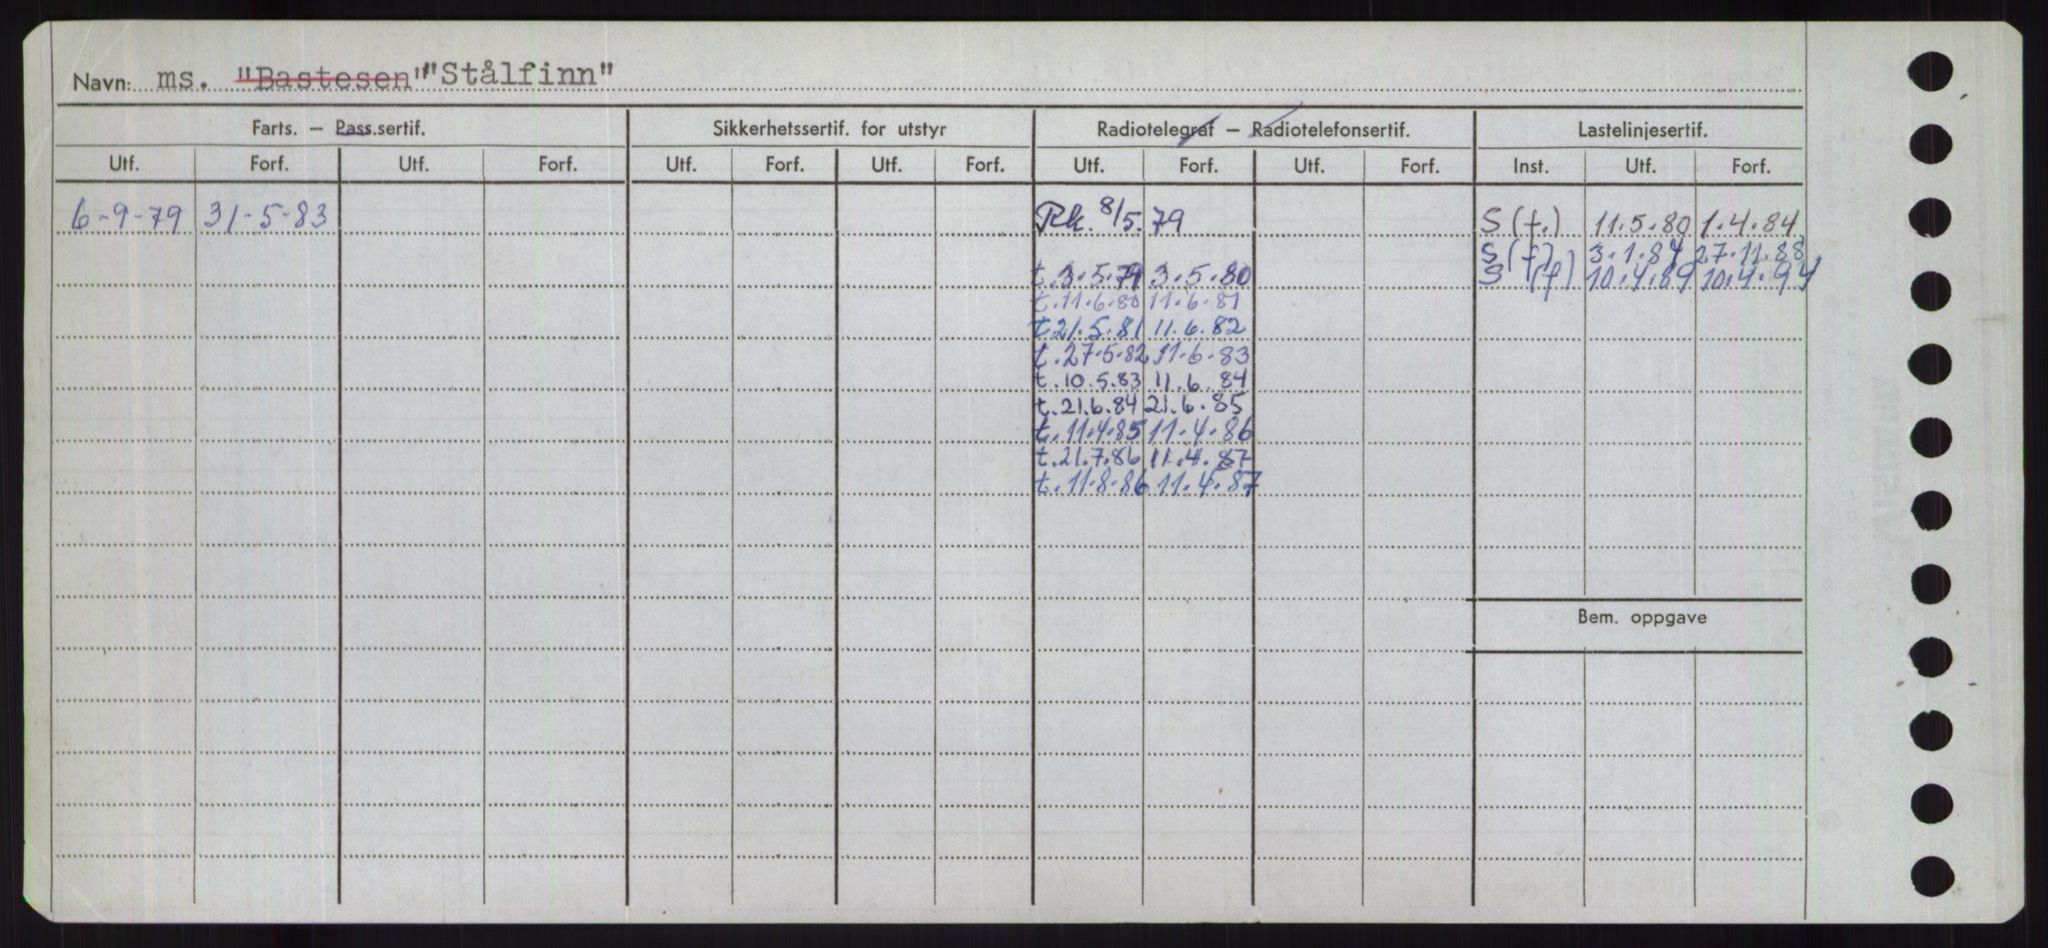 Navn: ms. "Bastesen" "Stålfinn"
Farts. — Pass.sertif. Sikkerhetssertif. for utstyr Radiotelegraf — Radiotelefonsertif. Lastelinjesertif.
Utf. Forf. Utf. Forf. Utf. Forf. Utf. Forf. Utf. Forf. Utf. Forf. Inst. Utf. Forf.
6-9-79 31-5-83 Rk. 8/5.79 S(f.) 11.5.80 1.4.84
S(f) 3.1.84 27.11.88
t.3.5.79 3.5.80 S (f) 10.4.89 10.4.94
t.11.6.80 11.6.81
t.21.5.81 11.6.82
t.27.5.82 11.6.83
t.10.5.83 11.6.84
t.21.6.84 21.6.85
t.11.4.85 11.4.86
t.21.7.86 11.4.87
t.11.8.86 11.4.87
Bem. oppgave